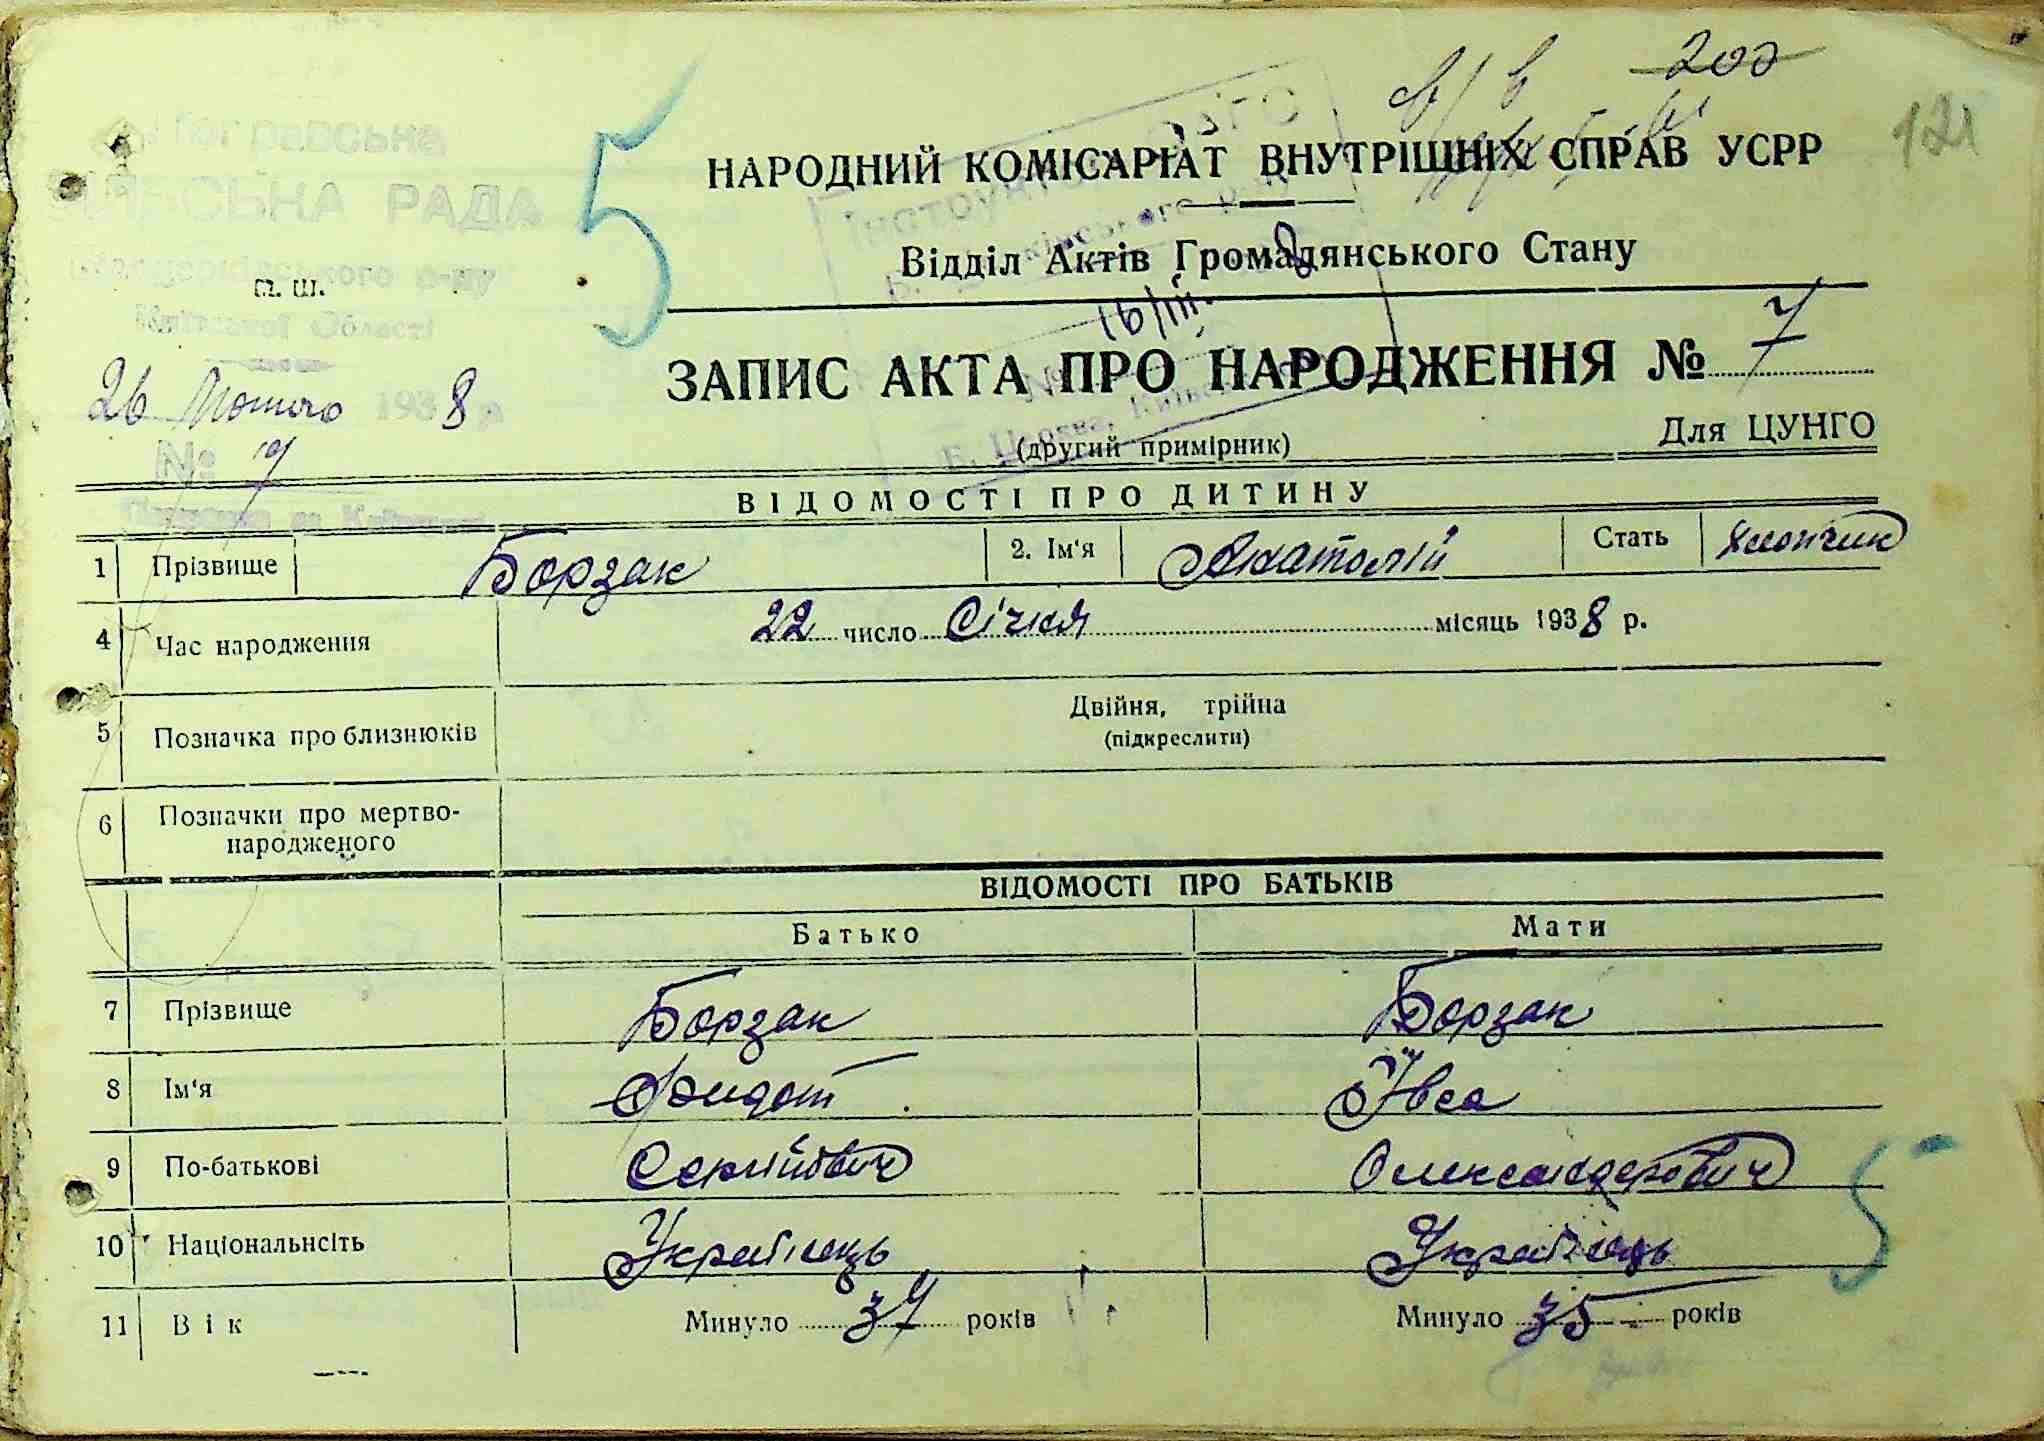 200
121
5
НАРОДНИЙ КОМІСАРІАТ ВНУТРІШНІХ СПРАВ УСРР
СІЛЬСЬКА РАДА
Білоцерківського р-ну
Відділ Актів Громадянського Стану
Київської Області
16/III
ЗАПИС АКТА ПРО НАРОДЖЕННЯ № 7
26 Лютого 1938 8 р
(другий примірник)
Для ЦУНГО
№ 7
ВІДОМОСТІ ПРО ДИТИНУ
1 Прізвище Борзак 2. Ім‘я Анатолій Стать Хлопчик
4 Час народження 22 число Січня місяць 1938 р.
5 Позначка про близнюків Двійня, трійна
(підкреслити)
6 Позначки про мертво-
народженого
ВІДОМОСТІ ПРО БАТЬКІВ
Батько Мати
7 Прізвище Борзак Борзак
8 Ім‘я Фидот Івга
9 По-батькові Сергійович Олександерович
10 Національнсіть Українець Українець
5
11 Вік Минуло 37 років Минуло 35 років